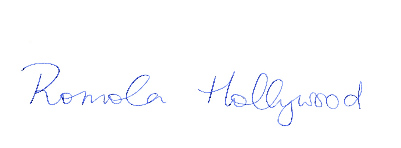 Romola Hollywood